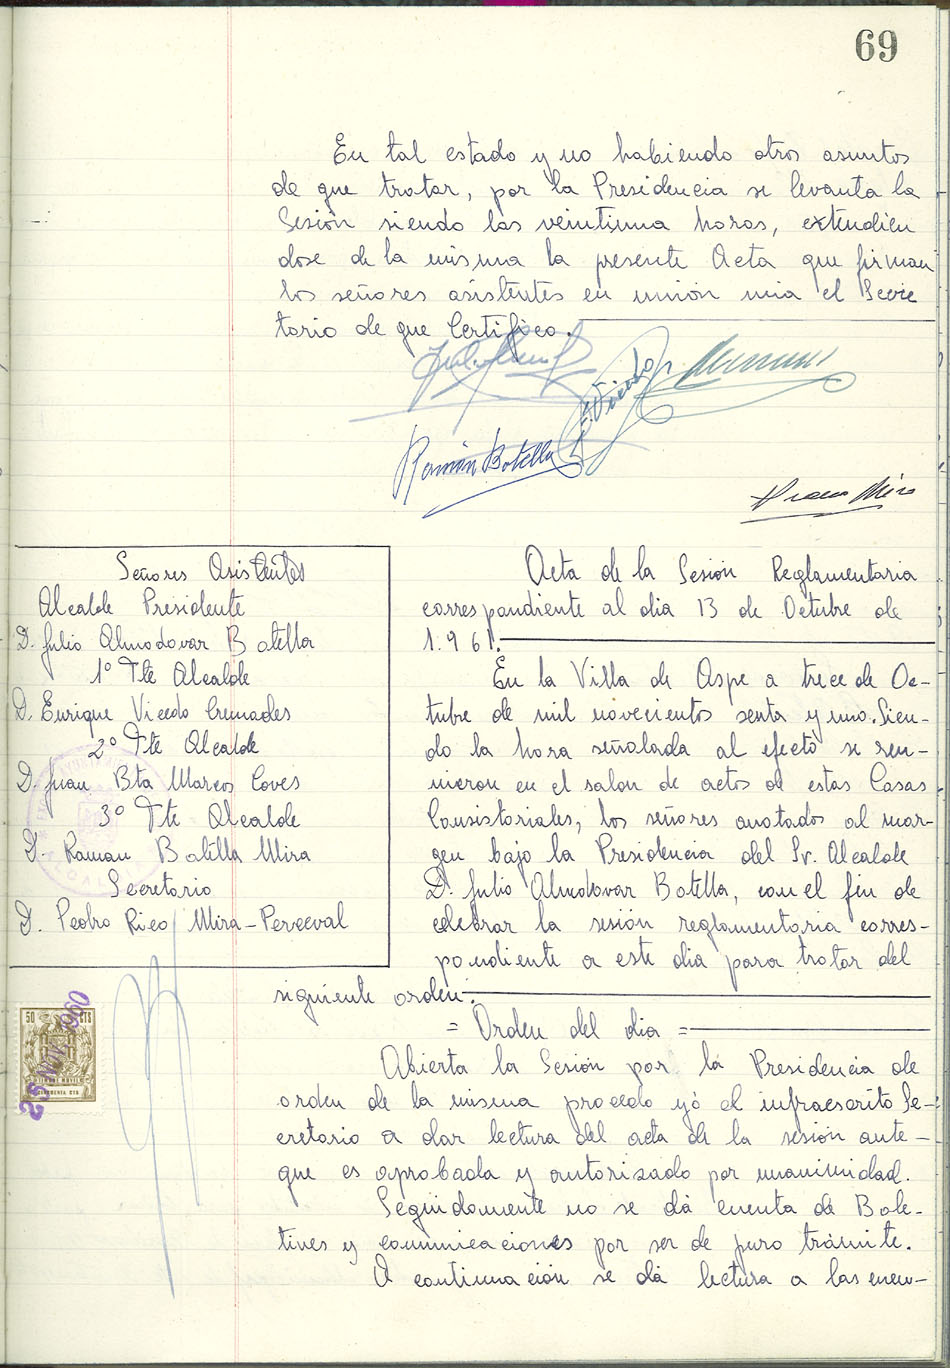 69
En tal estado y no habiendo otros asuntos
de que tratar, por la Presidencia se levanta la
Sesión siendo las veintiuna horas, extendien
dose de la misma la presente Acta que firman
los señores asistentes en unión mia el Secre
tario de que Certifico.
E. Vicedo
Ramón Botella
Señores Asistentes
Alcalde Presidente
D. Julio Almodovar Botella
1º Tte Alcalde
D. Enrique Vicedo Cremades
2º Tte Alcalde
D. Juan Bta Marcos Coves
3º Tte Alcalde
D. Raman Botella Mira
Secretario
D. Pedro Rico Mira-Perceval
50 CTS
25 JUN 1960
Acta de la Sesión Reglamentaria
correspondiente al dia 13 de Octubre de
1.961.
En la Villa de Aspe a trece de Oc-
tubre de mil novecientos senta y uno. Sien-
do la hora señalada al efecto se reu-
nieron en el salon de actos de estas Casas
Consistoriales, los señores anotados al mar-
gen bajo la Presidencia del Sr. Alcalde
D. Julio Almodovar Botella, con el fin de
celebrar la sesión reglamentaria corres-
pondiente a este dia para tratar del
siguiente orden.
= Orden del dia =
Abierta la Sesión por la Presidencia de
orden de la misma procedo yó el infraescrito Se-
cretario a dar lectura del acta de la sesión ante-
que es aprobada y autorizado por unanimidad.
Seguidamente no se dá cuenta de Bole-
tines y comunicaciones por ser de puro trámite.
A continuación se dá lectura a las cuen-